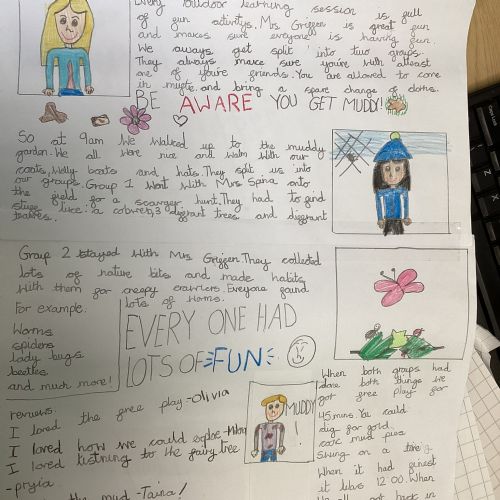 Every outdoor learning session is gull
of gun activitys. Mrs Griggen is great gun
and makes sure everyone is having gun.
We aways get split into two groups.
They always make sure you're with atleast
one of you're griends. You are allowed to come
in mugte. and bring a spare change of cloths.
BE AWARE YOU GET MUDDY!
So at 9am We walked up to the muddy
garden. We all wore nice and warm with our
coats, Welly boats and hats. They spilt us into
our groups. Group 1 Went With Mrs Spina onto
the gield gor a scavenger hunt. They had to gind
stugg like: a cobweb, 3 diggrant trees and diggrant
Group 2 stayed With Mrs Griggen. They collected
lots of native bits and made habits
With them gor creepy crawlers. Everyone gound
lots of worms.
For example:
Worms
spiders
lady bugs
beetles
and much more!
EVERY ONE HAD
LOTS OF FUN
When both groups had
done both things we
got gree play gor
45 mins. You could
dig gor gold.
cook mud pies
Swing on a
When it had ginest
it Was 12:00. When
MUDDY
!
reviews
I loved the gree play - Olivia
I loved how we could explore
I loved listning to the gairy tree
- pryia
the mud - Taina!